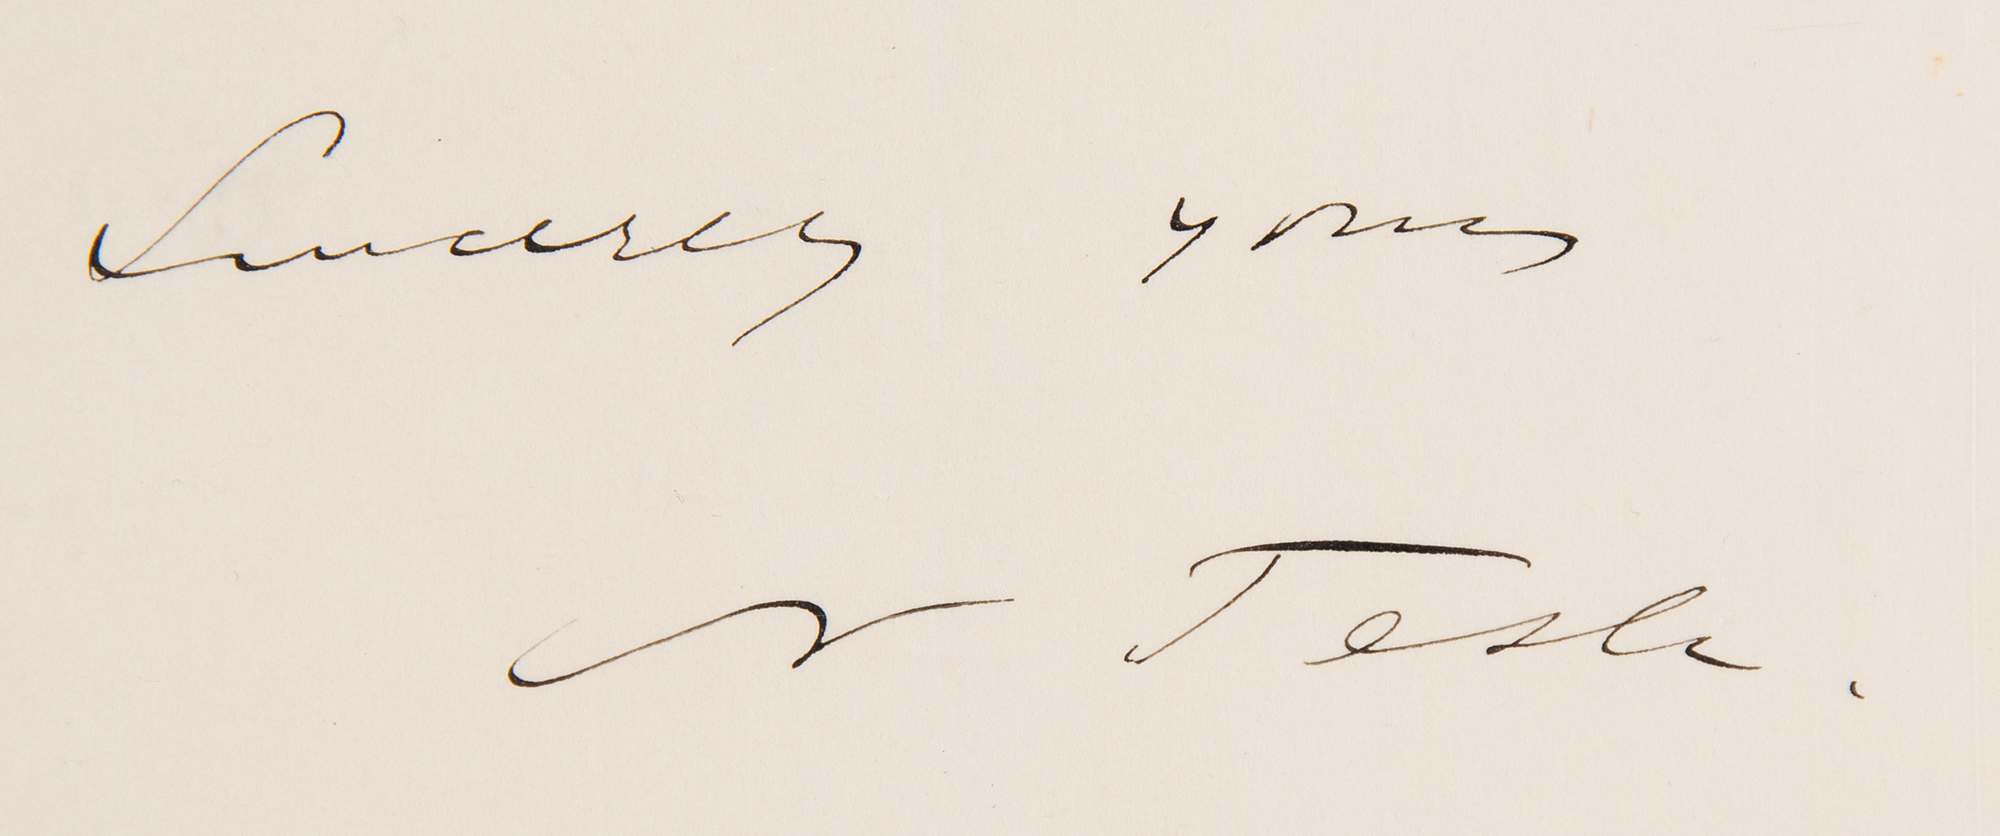 Sincerely yours
N Tesla.